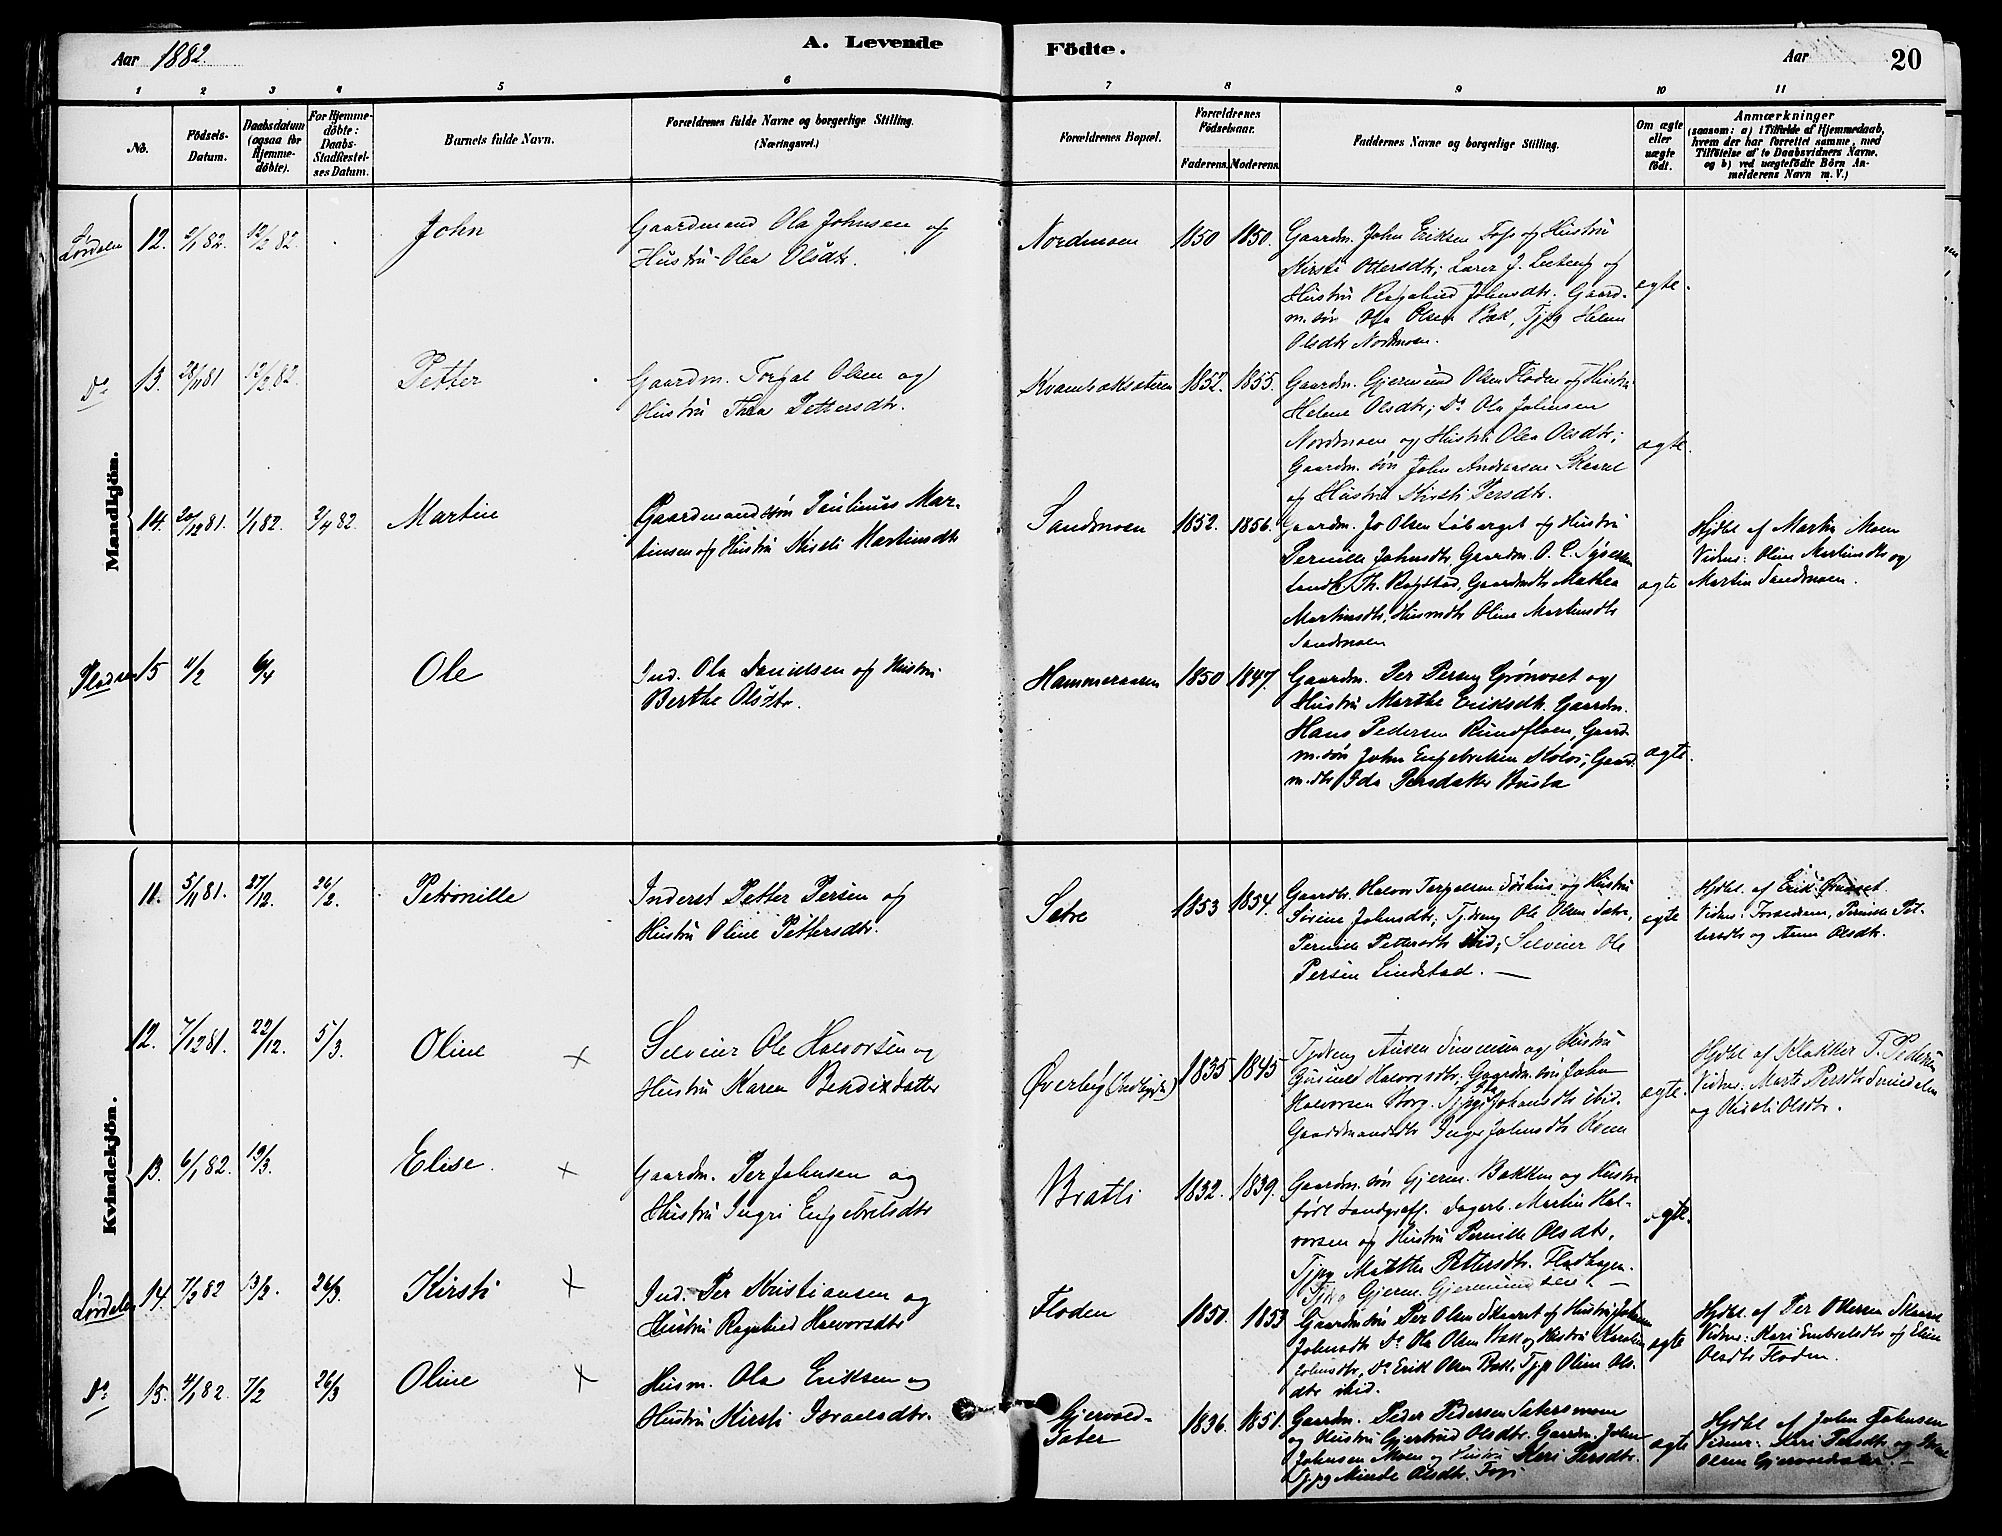 Aar 1882.
A. Levende Födte.
Aar
20
1 2 3 4 5 6 7 8 9 10 11
No.
Födsels-
Datum.
Daabsdatum
(ogsaa for
Hjemme-
döbte).
For Hjemme-
döbte:
Daabs-
Stadfæstel-
ses Datum.
Barnets fulde Navn.
Forældrenes fulde Navne og borgerlige Stilling.
(Næringsvei.)
Forældrenes Bopæl.
Forældrenes
Födselsaar.
Faderens. Moderens.
Faddernes Navne og borgerlige Stilling.
Om ægte
eller
uægte
födt.
Anmærkninger
(saasom: a) i Tilfælde af Hjemmedaab,
hvem der har forrettet samme, med
Tilföielse af to Daabsvidners Navne,
og b) ved uægtefödte Börn An-
melderens Navn m. V.)
Mandkjön.
Lørdalen 12. 2/1 82. 12/2 82. John
Gaardmand Ola Johnsen og
Hustru Olea Olsdtr.
Nordmoen 1850 1850.
Gaardm. John Eriksen og Hustru
Kirsti Ottersdtr; Lærer J. og
Hustru Ragnhild Johnsdtr. Gaard-
m. søn Ola Olsen Bak, Tjpg Helene
Olsdtr Nordmoen.
ægte.
Do 13. 28/11 81 12/2 82. Petter
Gaardm. Torgal Olsen og
Hustru Thea Pettersdtr.
Kvambæksæteren 1852. 1855.
Gaardm. Gjermund Olsen Floden og Hustru
Helene Olsdtr; Do Ola Johnsen
Nordmoen og Hustru Olea Olsdtr;
Gaardm. søn John Andreasen Skaaret
og Hustru Kirsti Persdtr.
ægte.
14. 20/12 81. 1/1 82. 2/4 82. Martin
Gaardmandssøn Paulinus Mar-
tinsen og Hustru Kisti Martinsdtr
Sandmoen 1852. 1856.
Gaardm. Jo Olsen Løberget og Hustru
Pernille Johnsdtr, Gaardm. O. C.
Th. Rogstad, Gaardmdtr Mathea
Martinsdtr, Husmdtr Oline Martinsdtr
Sandmoen
ægte
Hjdbt af Martin Moen
Vidner: Oline Martinsdtr og
Martin Sandmoen.
Pladsen 15 11/2 6/4 Ole
Ind. Ola Danielsen og Hustru
Berthe Olsdtr.
Hammeraasen 1850 1847.
Gaardm. Per Persen Grønoset og
Hustru Marthe Eriksdtr. Gaardm.
Hans Pedersen Rundfloen, Gaard-
m. søn John Engebretsen Gaard-
m. dtr Ida Persdatter Busta
ægte.
Kvindekjön.
11. 5/11 81. 27/12. 26/2. Petronille
Inderst Petter Persen og
Hustru Oline Pettersdtr.
Sætre 1853 1854.
Gaardbr. Halvor Torgalsen Sørhus og Hustru
Sørine Johnsdtr; Ole Olsen Sætre,
Pernille Pettersdtr ibid; Selveier Ole
Persen Lindstad.
ægte
Hjdbt. af Erik
Vidner: Forældrene, Pernille Pet-
tersdtr og Anne Olsdtr.
12. 7/12 81. 22/12. 5/3. Oline ×
Selveier Ole Halvorsen og
Hustru Karen Bendixdatter
Øverby 1835 1845
Simensen og Hustru
Halvorsdtr; Gaardm. søn John
Halvorsen Borg. Tjpg Johansdtr ibid.
Gaardmandsdtr Inger Johnsdtr
ægte.
Hjdbt af Klokker T. Pedersen
Vidner: Marte Persdtr
og Kisti Olsdtr.
13. 6/1 82. 19/3. Elise. ×
Gaardm. Per Johnsen og
Hustru Ingri Engebretsdtr
Bratli 1832. 1839.
Gaardm. søn Gjerm. Bakken og Hustru
født Landgraff. Dagarb. Martin Hal-
vorsen og Hustru Pernille Olsdtr,
Tjpg Mathea Pettersdtr. Flodhagen.
Gjerm. Gjermundsen
ægte.
Lørdalen 14. 7/2 82 13/2. 26/3. Kirsti ×
Ind. Per Kristiansen og
Hustru Ragnhild Halvorsdtr
Floden 1850. 1853
Gaardm. søn Per Olsen Skaaret og Hustru
Johnsdtr Do Ola Olsen Bak og Hustru Karoline
Johnsdtr, Do Erik Olsen Bak, Tjpg Oline Ols-
dtr ibid.
ægte
Hjdbt. af Per Ottersen Skaaret
Vidner: Kari Embretsdtr og Eline
Olsdtr Floden.
Do 15. 4/1 82. 7/2 26/3 Oline ×
Husm. Ola Eriksen og
Hustru Kirsti Israelsdtr.
Gjervold-
sæter 1836. 1851.
Gaardm. Peder Pedersen Sætersmoen
og Hustru Gjertrud Olsdtr. Gaardm. John
Johnsen Moen og Hustru Kari Persdtr.
Tjpg Olsdtr.
ægte
Hjdbt af John Johnsen
Vidner. Kari Persdtr og
Olsen Gjervoldsæter.